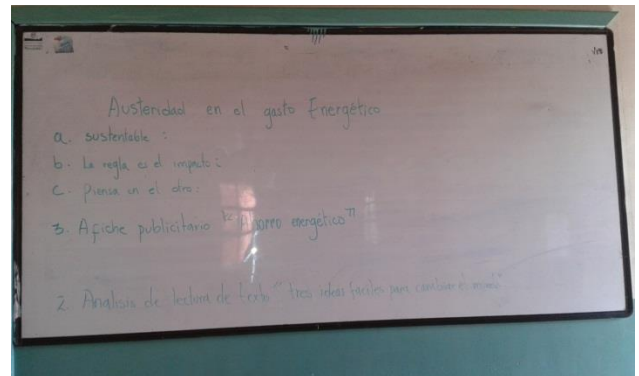 Austeridad en el gasto Energético
a. sustentable :
b. La regla es el impacto :
c. Piensa en el otro :
3. Afiche publicitario "Ahorro energético"
2. Analisis de lectura de texto "tres ideas faciles para cambiar el mundo"